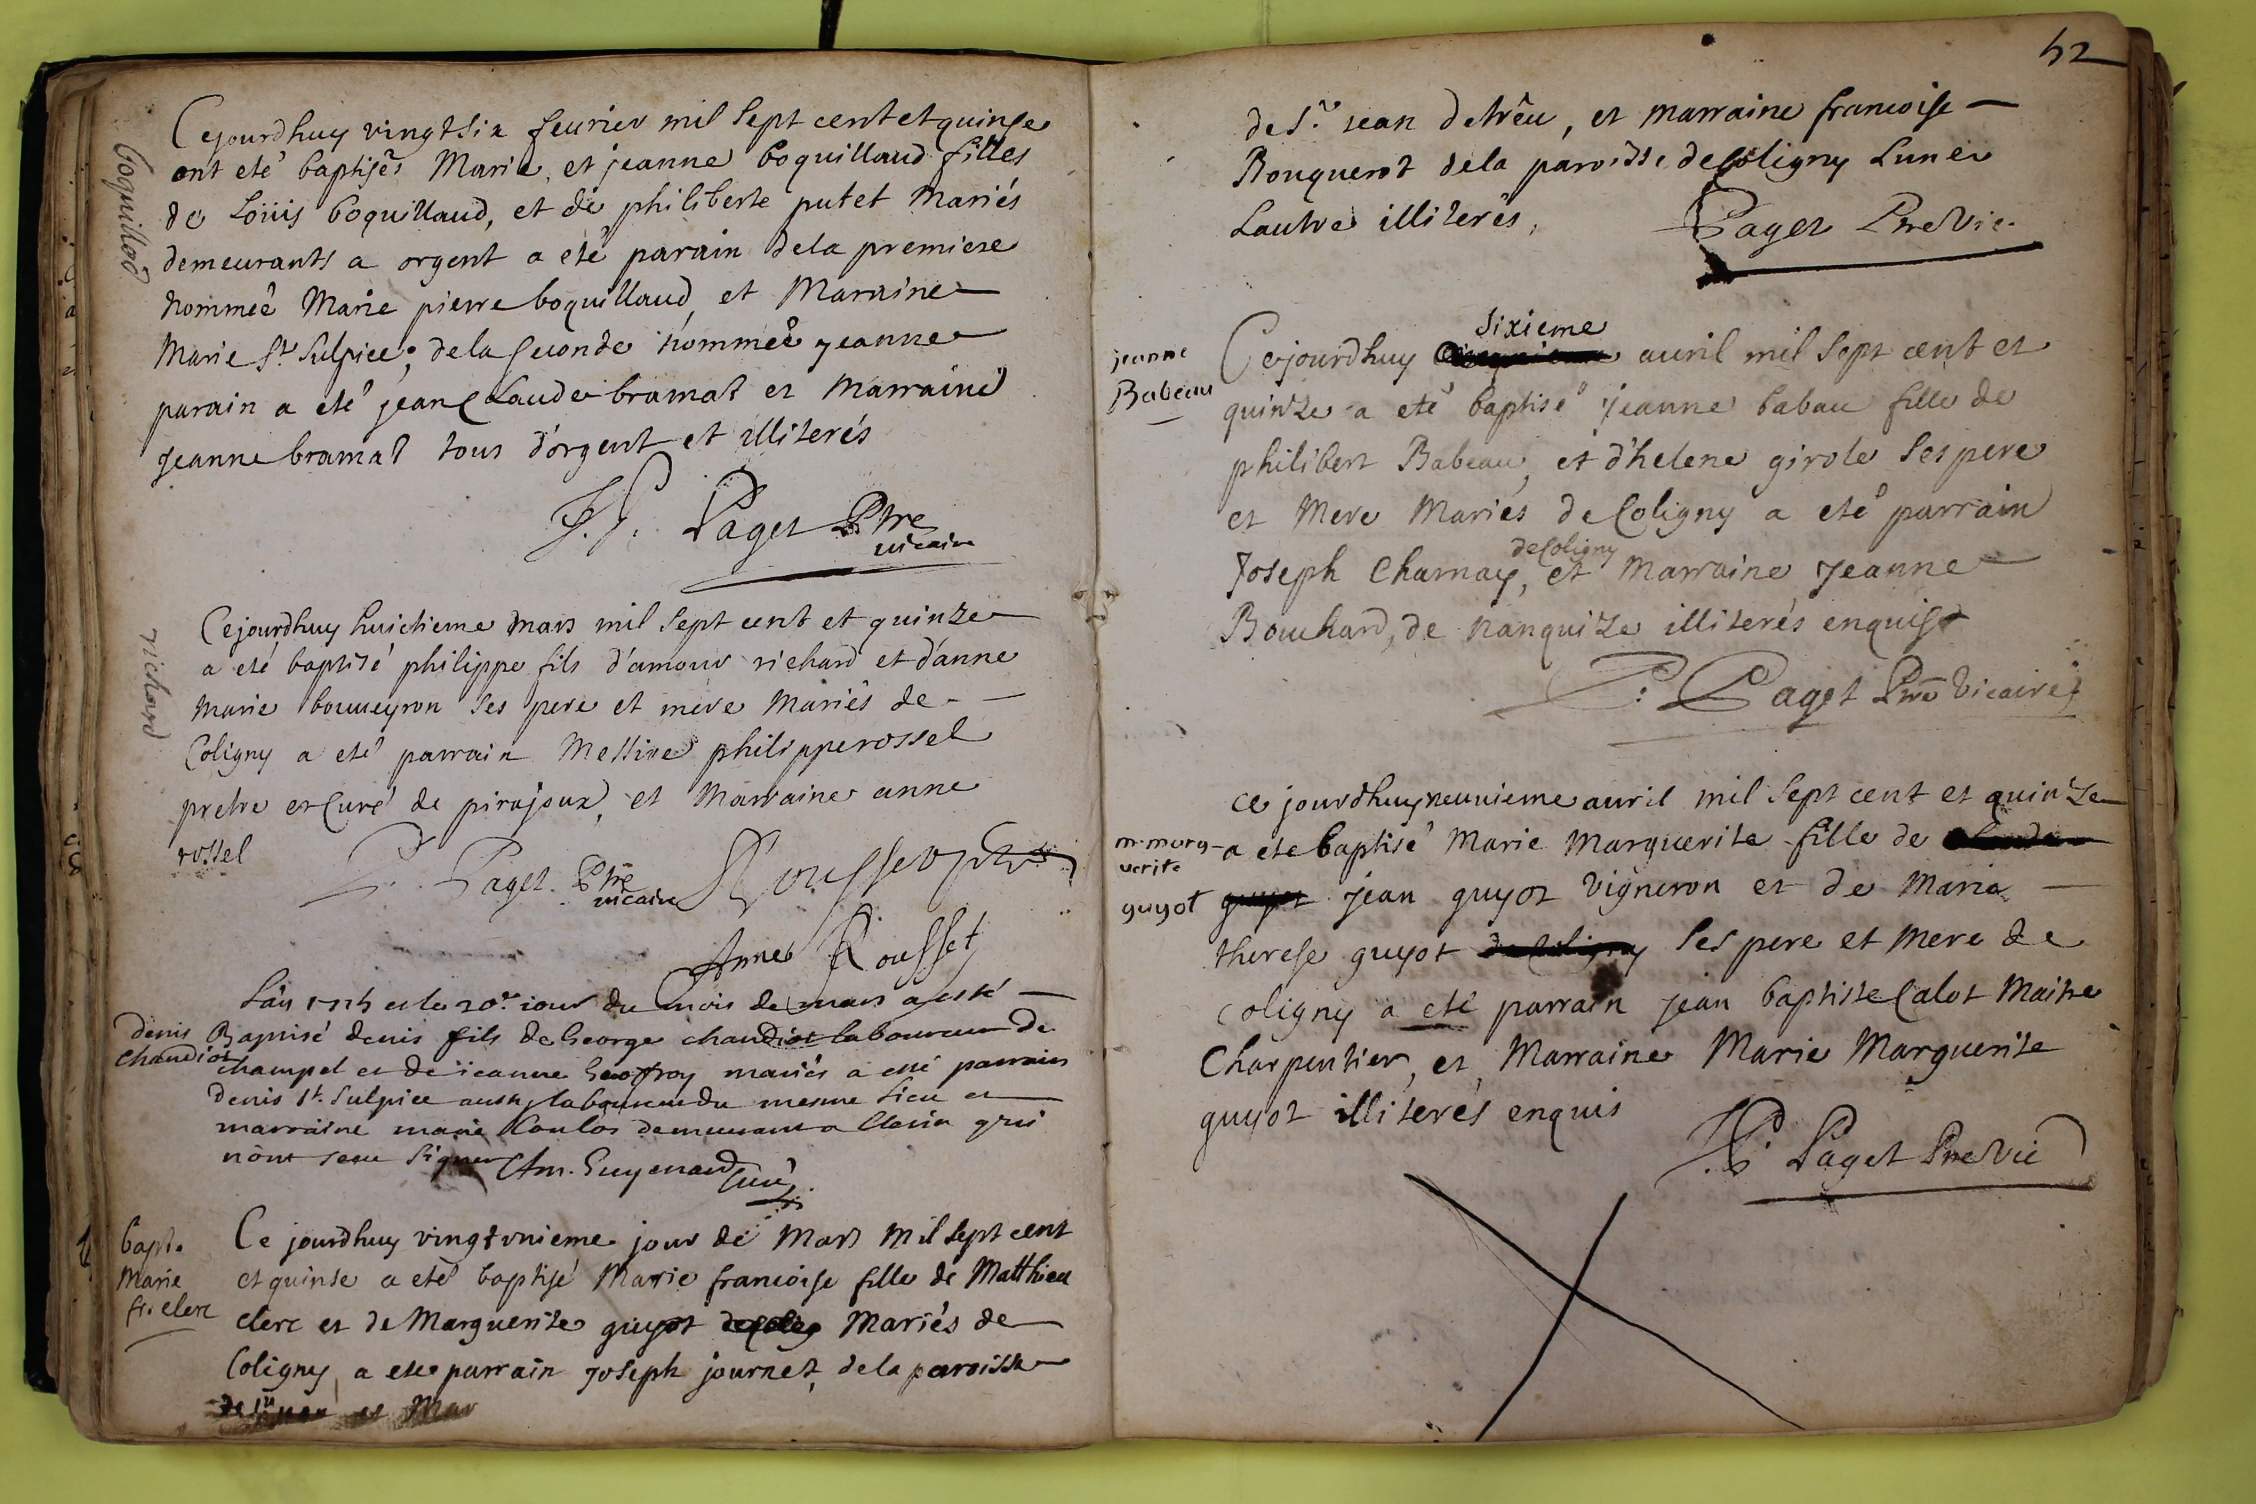 Boquillod
Cejourdhuy vingt six feurier mil sept cent et quinse
ont eté baptisés Marie, et jeanne boquillaud filles
de Loüis boquillaud, et de philiberte putet Mariés
demeurants a orgent a eté parain dela premiere
nommeé Marie pierre boquillaud, et Maraine
Marie St Sulpice; dela seconde nommeé jeanne
parain a eté jean Claude bramat et Marraine
jeanne bramat tous d'orgent et illiterés
Paget Ptre
vicaire
richard
Cejourdhuy huictieme mars mil sept cent et quinze
a eté baptisé philippe fils d'amour richard et d'anne
marie bouveyron ses pere et mere mariés de
Coligny a eté parrain Messire philippe rossel
pretre et Curé de pirajoux, et Marraine anne
rossel
P. Paget Ptre
vicaire
Anne Rousset
Lân 1715 et le 20e iour du mois de mars a esté
denis
chandiot
Baptisé denis fils de George chandiot laboureur de
champel et de ieanne Geoffroy mariés a esté parrain
denis St Sulpice aussy laboureur du mesme lieu et
marraine marie Coulos demeurant a Cleria qui
nônt seeu signer Am. Guyenard Curé
bapt.
Marie
fr. clerc
Ce jourdhuy vingt vnieme jour de Mars mil sept cent
et quinse a eté baptisé Marie francoise fille de Matthieu
clerc et de Marguerite guyot de Colig Mariés de
Coligny, a eté parrain joseph journet, dela paroisse
de st jean et Mar
52
de St jean detrêu, et marraine francoise
Bouquerot dela paroisse de Coligny Lun et
Lautre illiterés,
Paget Ptre Vic.
jeanne
Babeau
sixieme
Cejourdhuy auril mil sept cent et
quinze a eté baptisé jeanne babau fille de
philibert Babeau, et d'helene girole ses pere
et Mere Mariés de Coligny a eté parrain
de Coligny
Joseph Charnay, et Marraine jeanne
Bouchard, de nanquize illiterés enquist
P. Paget Ptre Vicaire
ce jourdhuy neunieme auril mil sept cent et quinze
m. marg-
uerite
guyot
a eté baptisé Marie Marguerite fille de
guyot jean guyot Vigneron et de Maria
therese guyot de Coligny ses pere et Mere de
coligny a eté parrain jean baptiste Calot Maitre
Charpentier, et, Marraine Marie Marguerite
guyot illiterés enquis
P. Paget Ptre Vic